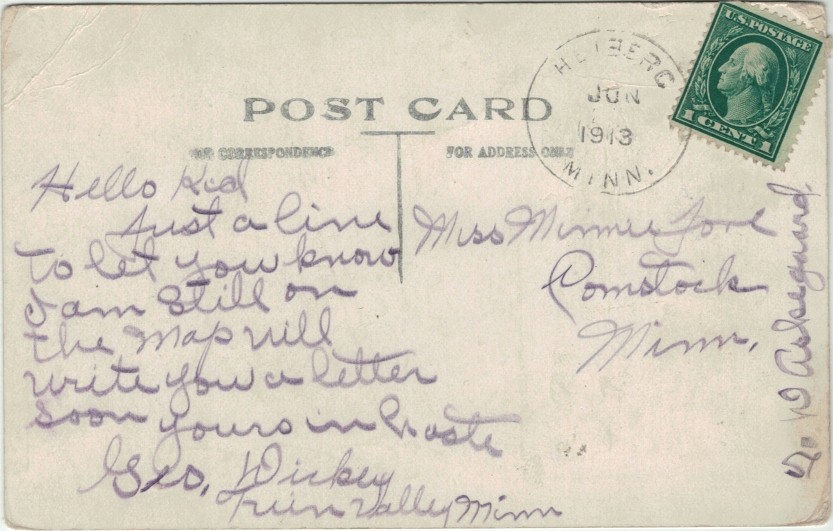 POST CARD
FOR CORRESPONDENCE
FOR ADDRESS ONLY
HEIBERG
JUN
1913
MINN.
U.S. POSTAGE
1 CENT 1
Hello Kid
Just a line
to let you know
I am still on
the map will
write you a letter
soon yours in haste
Geo, Dickey
Twin Valley Minn
Miss Minnie
Comstock
Minn,
Askegaard